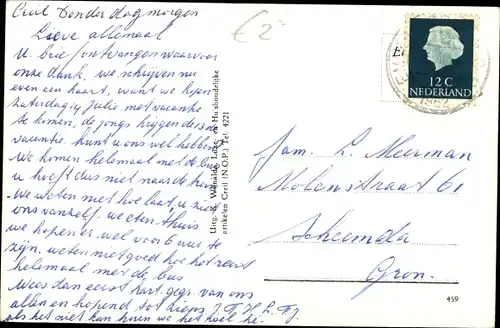 Creil Donderdagmorgen
€ 2
Lieve allemaal
U brief ontvangen waarvoor
onze dank, we schrijven nu
even een kaart, want we hopen
Zaterdag 14 Julie met vacantie
te komen, de jongs krijgen de
vacantie. kunt u ons wel hebben
We komen helemaal met de bus
u hoeft dus niet naar de trein
We weten niet hoe laat u ziet
ons vanzelf, we eten thuis
we hopen er wel voor 6 uur te
zijn, weten niet goed hoe het reist
helemaal met de bus
Wees dan eerst hart. gegr. van ons
allen en hopend tot ziens J. T. H. L. Fij
als het niet kan horen we het wel he.
Uitg.: Luxe- en Huishoudelijke
artikelen Creil (N.O.P.) Tel. 4221
12 C
NEDERLAND
1962
Fam. L. Meerman
Molenstraat 61
Scheemda
Gron.
459